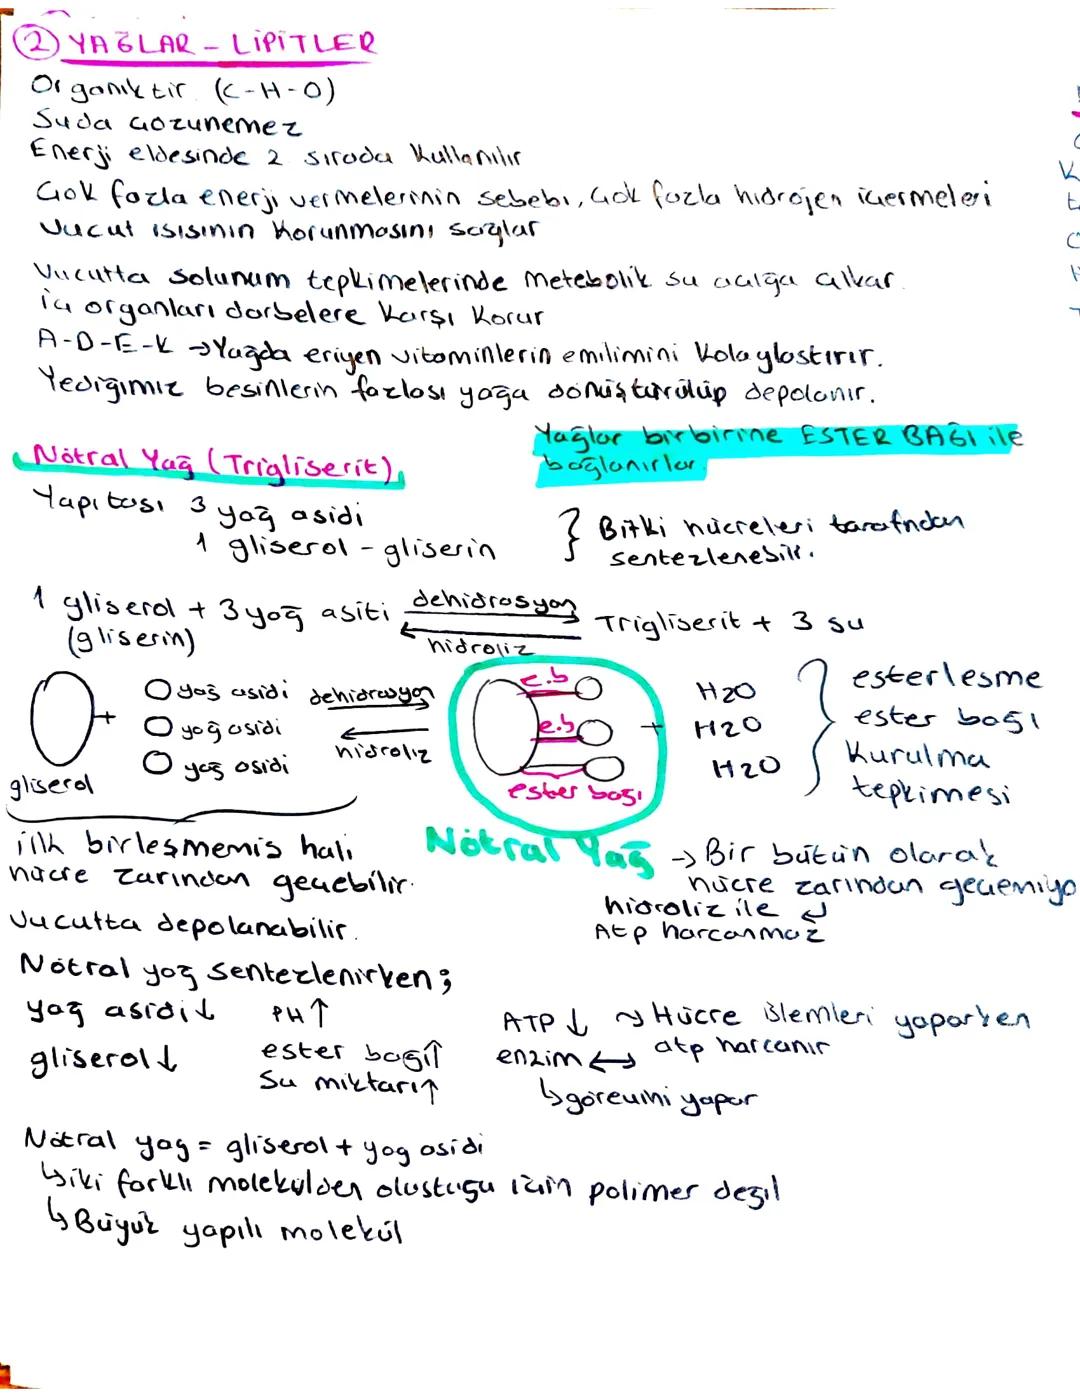 2 YAĞLAR - LİPİTLER
Organiktir (C-H-O)
Suda çözünemez
Enerji eldesinde 2 sırada kullanılır
Çok fazla enerji vermelerinin sebebi, çok fazla hidrojen içermeleri
Vücut ısısının korunmasını sağlar
Vücutta solunum tepkimelerinde metebolik su açığa çıkar.
İç organları darbelere karşı korur
A-D-E-K → Yağda eriyen vitaminlerin emilimini kolaylaştırır.
Yediğimiz besinlerin fazlası yağa dönüştürülüp depolanır.
Yağlar birbirine ESTER BAĞI ile
bağlanırlar.
Nötral Yağ (Trigliserit)
Yapıtası 3 yağ asidi
1 gliserol - gliserin
} Bitki hücreleri tarafından
sentezlenebilir.
1 gliserol + 3 yağ asiti dehidrasyon Trigliserit + 3 su
(gliserin) hidroliz
yağ asidi dehidrasyon e.b H2O esterlesme
+ yağ asidi e.b + H2O ester bağı
yağ asidi hidroliz H2O kurulma
gliserol ester bağı tepkimesi
ilk birleşmemis hali Nötral Yağ → Bir bütün olarak
hücre zarından geçebilir. hücre zarından geçemiyo
hidroliz ile ↲
Vücutta depolanabilir. Atp harcanmaz
Nötral yağ sentezlenirken;
yağ asidi ↓ PH ↑ ATP ↓ ~ Hücre işlemleri yaparken
gliserol ↓ ester bağı ↑ enzim ↔ atp harcanır
Su miktarı ↑ ↳ görevini yapar
Nötral yağ = gliserol + yag asidi
↳ iki farklı molekülden oluştuğu için polimer değil
↳ Büyük yapılı molekül